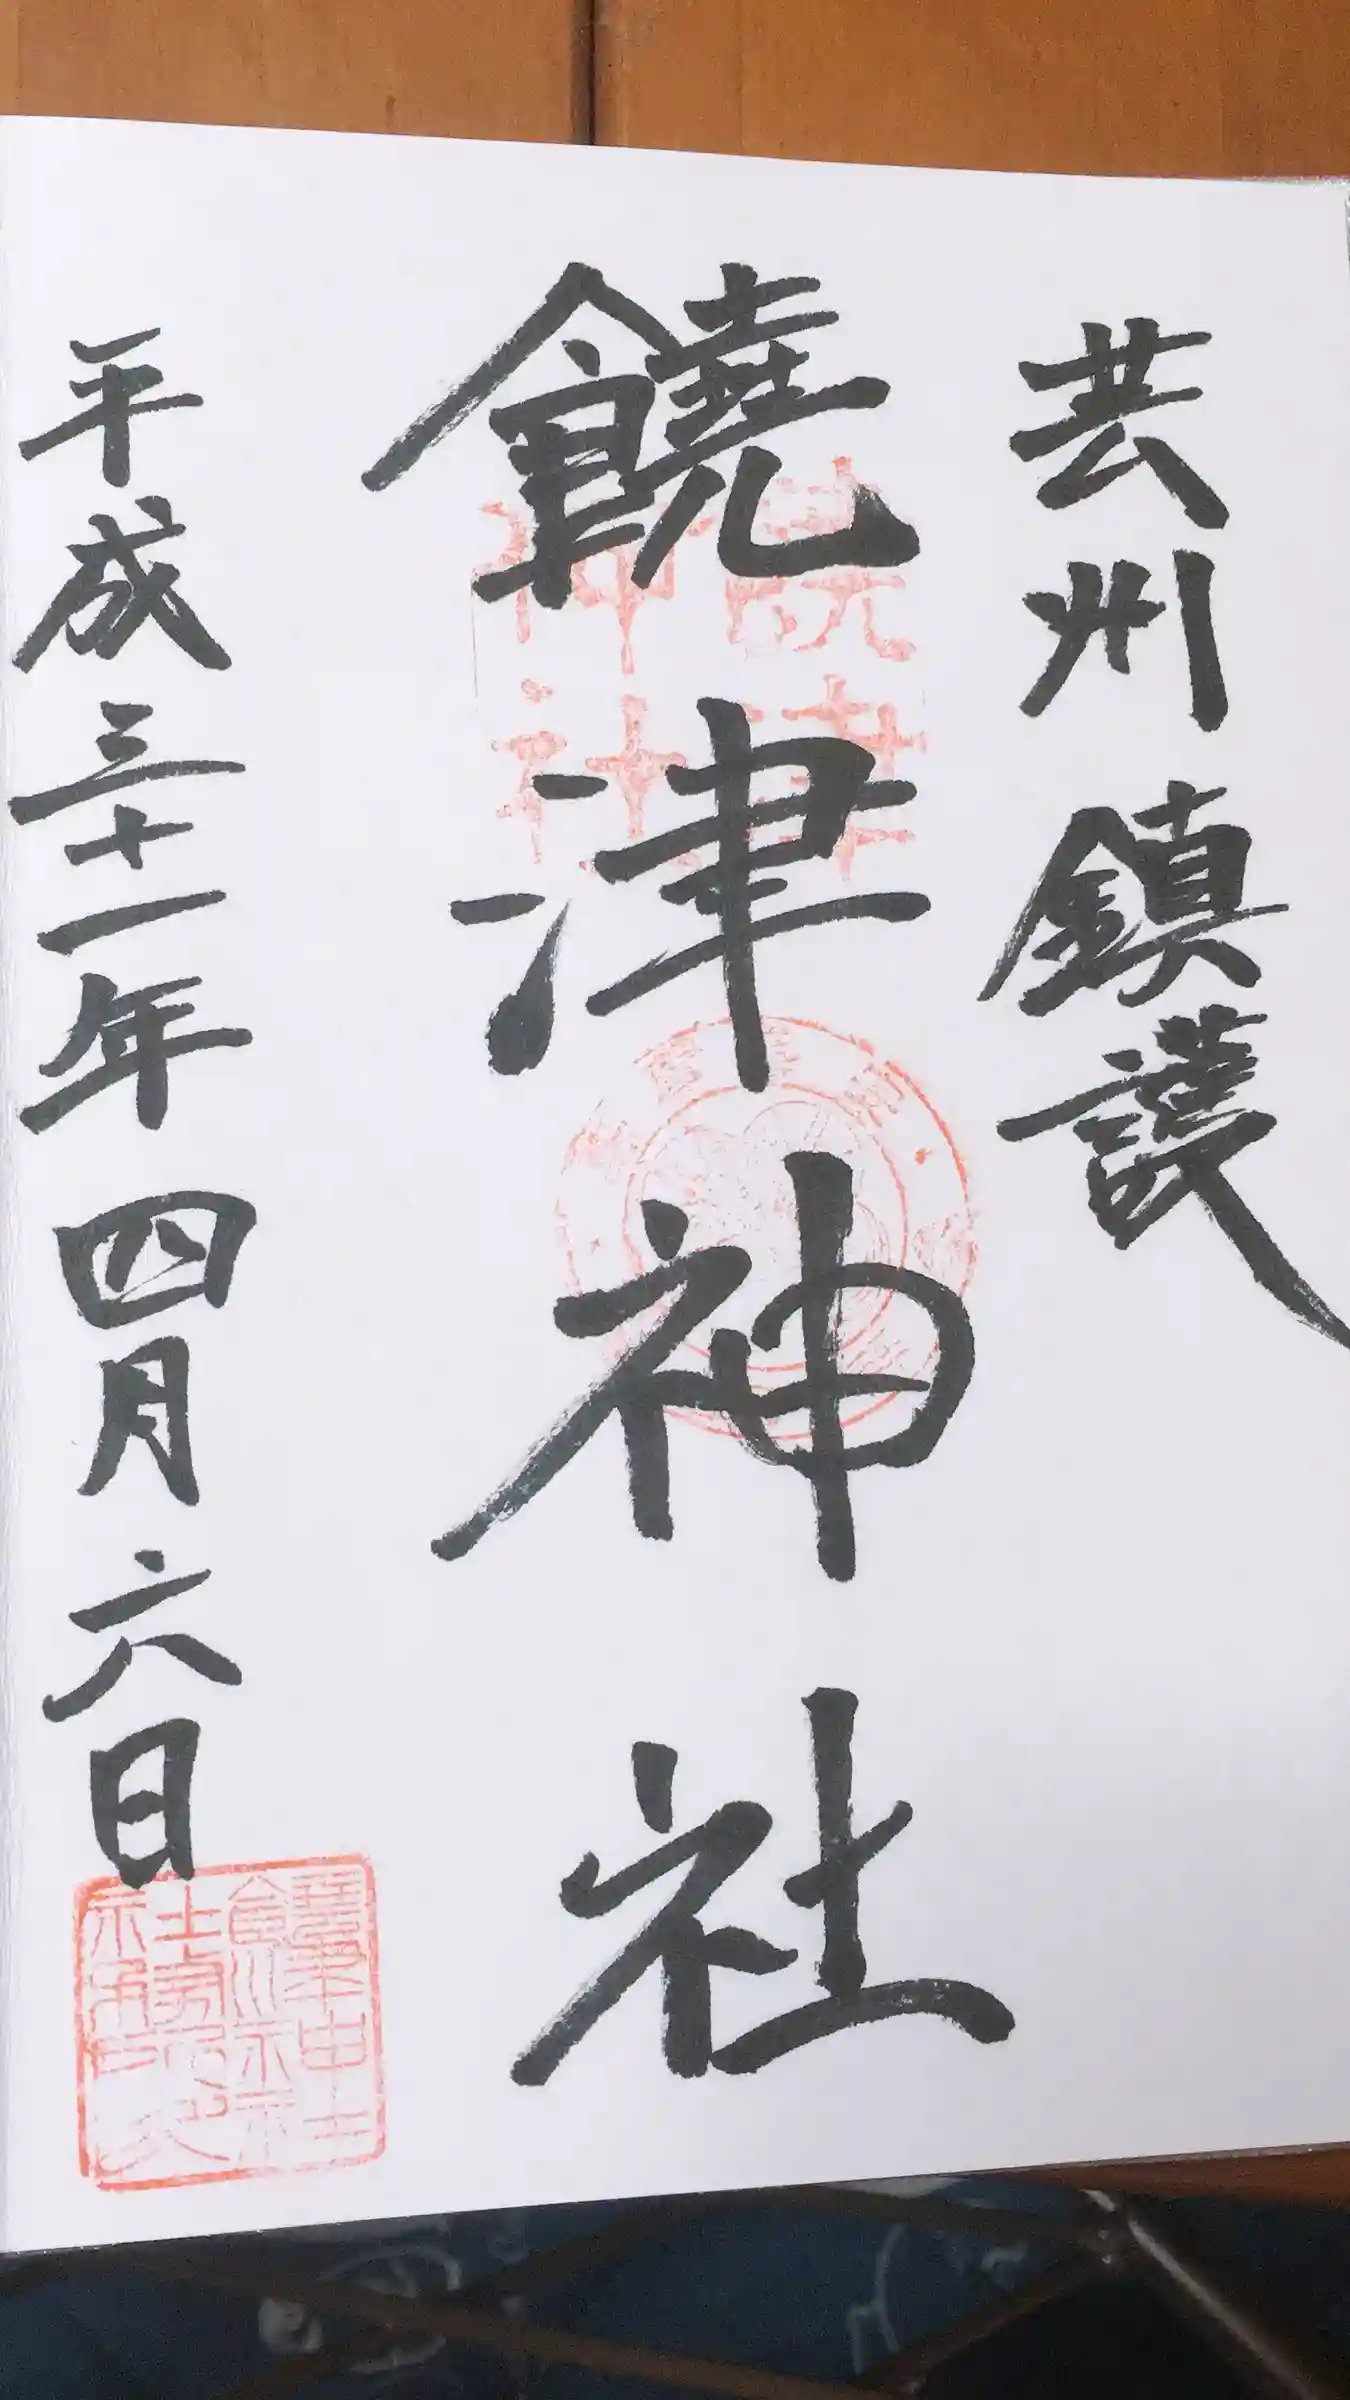 芸州鎮護
饒津神社
平成三十一年四月六日
饒津神社